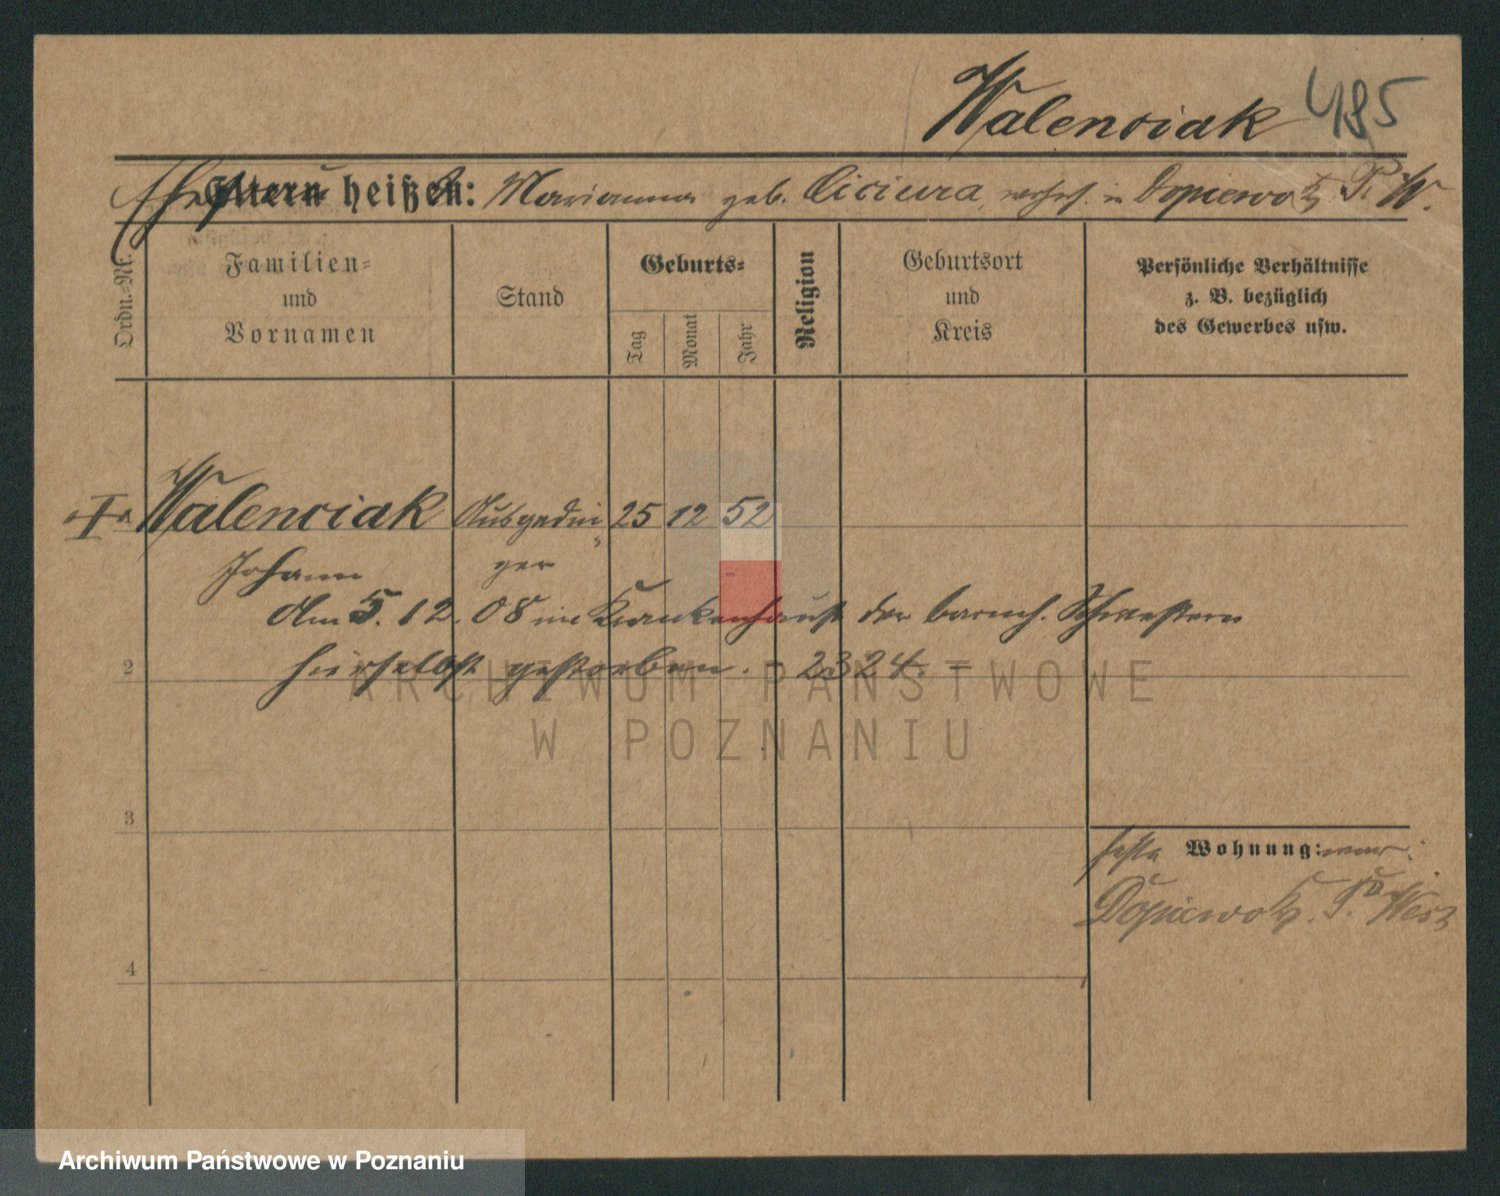 Walenciak 485
Ehefrau Eltern heißen: Marianna geb. Ciciura, wohnh. in Dopiewo Kr. P. W.
Ordn.-Nr.
Familien-
und
Vornamen
Stand
Geburts-
Tag
Monat
Jahr
Religion
Geburtsort
und
Kreis
Persönliche Verhältnisse
z. B. bezüglich
des Gewerbes usw.
Walenciak Ausgedin 25 12 52
Johann ger
Am 5. 12. 08 im Krankenhause der barmh. Schwestern
2 hierselbst gestorben. - 2324. -
ARCHIWUM PAŃSTWOWE
W POZNANIU
3
feste Wohnung: war:
Dopiewo Kr. Po West
4
Archiwum Państwowe w Poznaniu